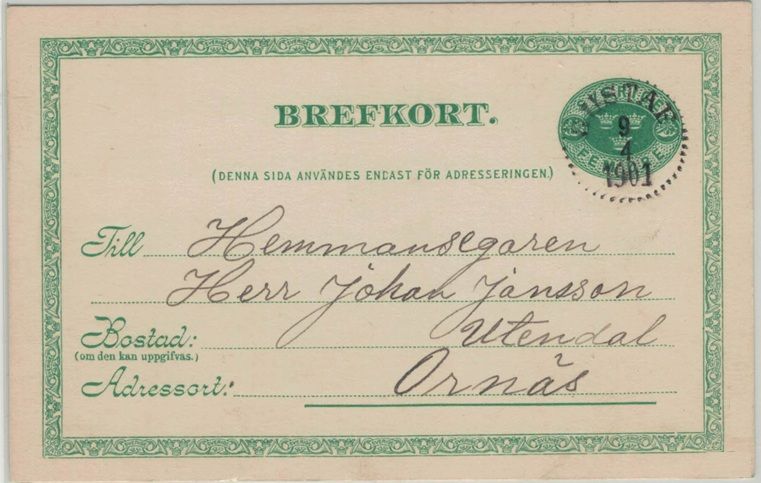 BREFKORT.
(DENNA SIDA ANVÄNDES ENDAST FÖR ADRESSERINGEN.)
9
4
1901
Till Hemmansegaren
Herr Johan Jansson
Bostad: Utendal
(om den kan uppgifvas.)
Adressort: Ornäs